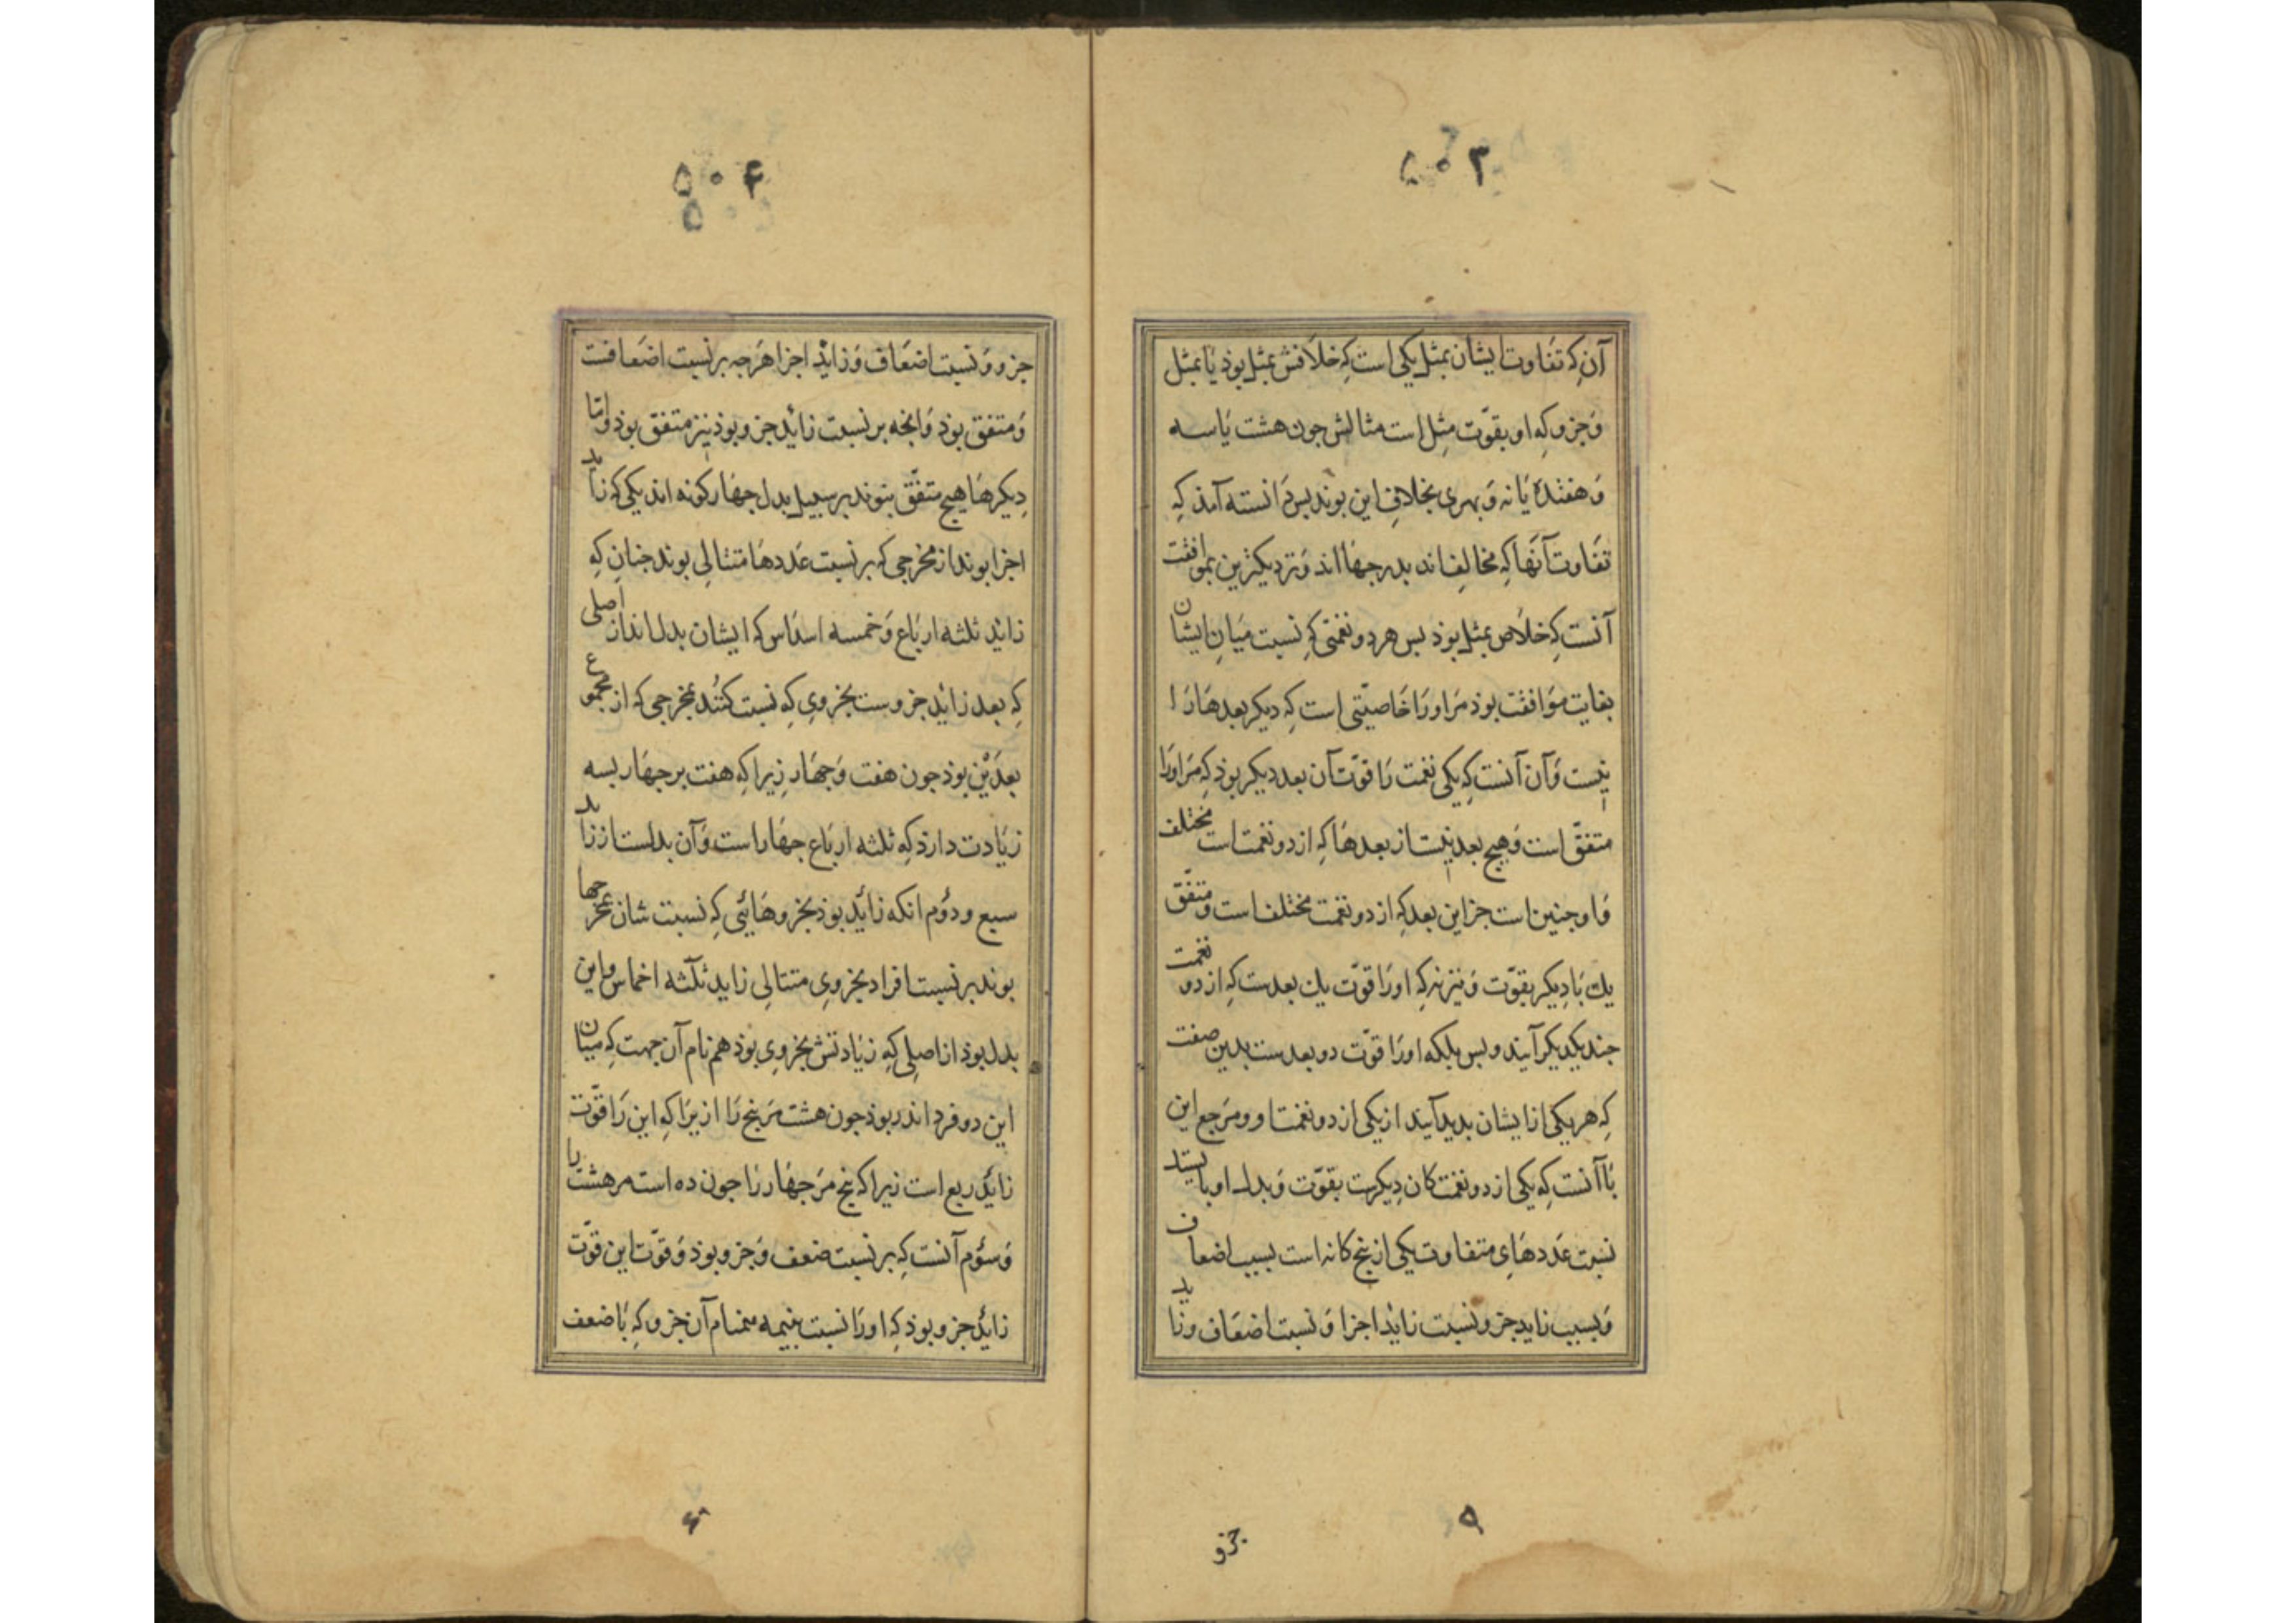 ۵۰۳
آن که تفاوت ایشان بمثل یکی است که خلافش بمثل بوذ یا بمثل
و جزو که او بقوّت مثل است مثالش جون هشت یا سه
و هفتده یا نه و بهری بخلاف این بوند بس دانسته آمذ که
تفاوت آنها که مخالف اند بدرجها اند و نزدیکترین بموافقت
آنست که خلاص بمثل بوذ بس هر دو نغمتی که نسبت میان ایشان
بغایت موافقت بوذ مر او را خاصیّتی است که دیکر بعدها را
نیست و آن آنست که یکی نغمت را قوّت آن بعد دیکر بوذ که مر او را
متفقّ است و هیج بعد نیست از بعدها که از دو نغمت است مختلف
و او جنین است جز این بعد که از دو نغمت مختلف است و متفّق
یك با دیکر بقوّت و نیز نه که او را قوّت یك بعدست که از دو نغمت
جند یکدیکر آیند و بس بلکه او را قوّت دو بعدست بدین صفت
که هر یکی از ایشان بدید آیند از یکی از دو نغمت او و مرجع این
با آنست که یکی از دو نغمت کان دیکرست بقوّت و بدل او بایستد
نسبت عددهای متفاوت یکی از بنج کانه است بسبب اضعاف
و بسبب زاید جزو نسبت زاید اجزا و نسبت اضعاف و زاید
جزو
۵
۵۰۴
۵۰
جزو و نسبت اضعاف و زاید اجزا هرجه بر نسبت اضعافست
و متفق بوذ و آنجه بر نسبت زائد جزو بوذ نیز متفقّ بوذ و امّا
دیکرها هیج متفّق بنوند بر سبیل بدل جهار کونه اند یکی که زاید
اجزا بوند از مخرجی که بر نسبت عددها متتالی بوند جنان که
زاید ثلثه ارباع و خمسه اسداس که ایشان بدل اند از اصلی
که بعد زاید جزوست بجزوی که نسبت کنند بمخرجی که از مجموع
بعدین بوذ جون هفت و جهار زیرا که هفت بر جهار بسه
زیادت دارذ که ثلثه ارباع جهار است و آن بدلست از زاید
سبع و دوم انکه زائد بوذ بجزوهائی که نسبت شان بمخرجها
بوند بر نسبت افراد بجزوی متتالی زاید ثلثه اخماس و این
بدل بوذ از اصلی که زیادتش بجزوی بوذ هم نام آن جهت که میان
این دو فرد اندر بوذ جون هشت مر بنج را ازیرا که این را قوّت
زائد ربع است زیرا که بنج مر جهار را جون ده است مر هشت را
و سوم آنست که بر نسبت ضعف و جزو بوذ و قوّت این قوّت
زاید جزو بوذ که او را نسبت بنیمه همنام آن جزو که با ضعف
۶